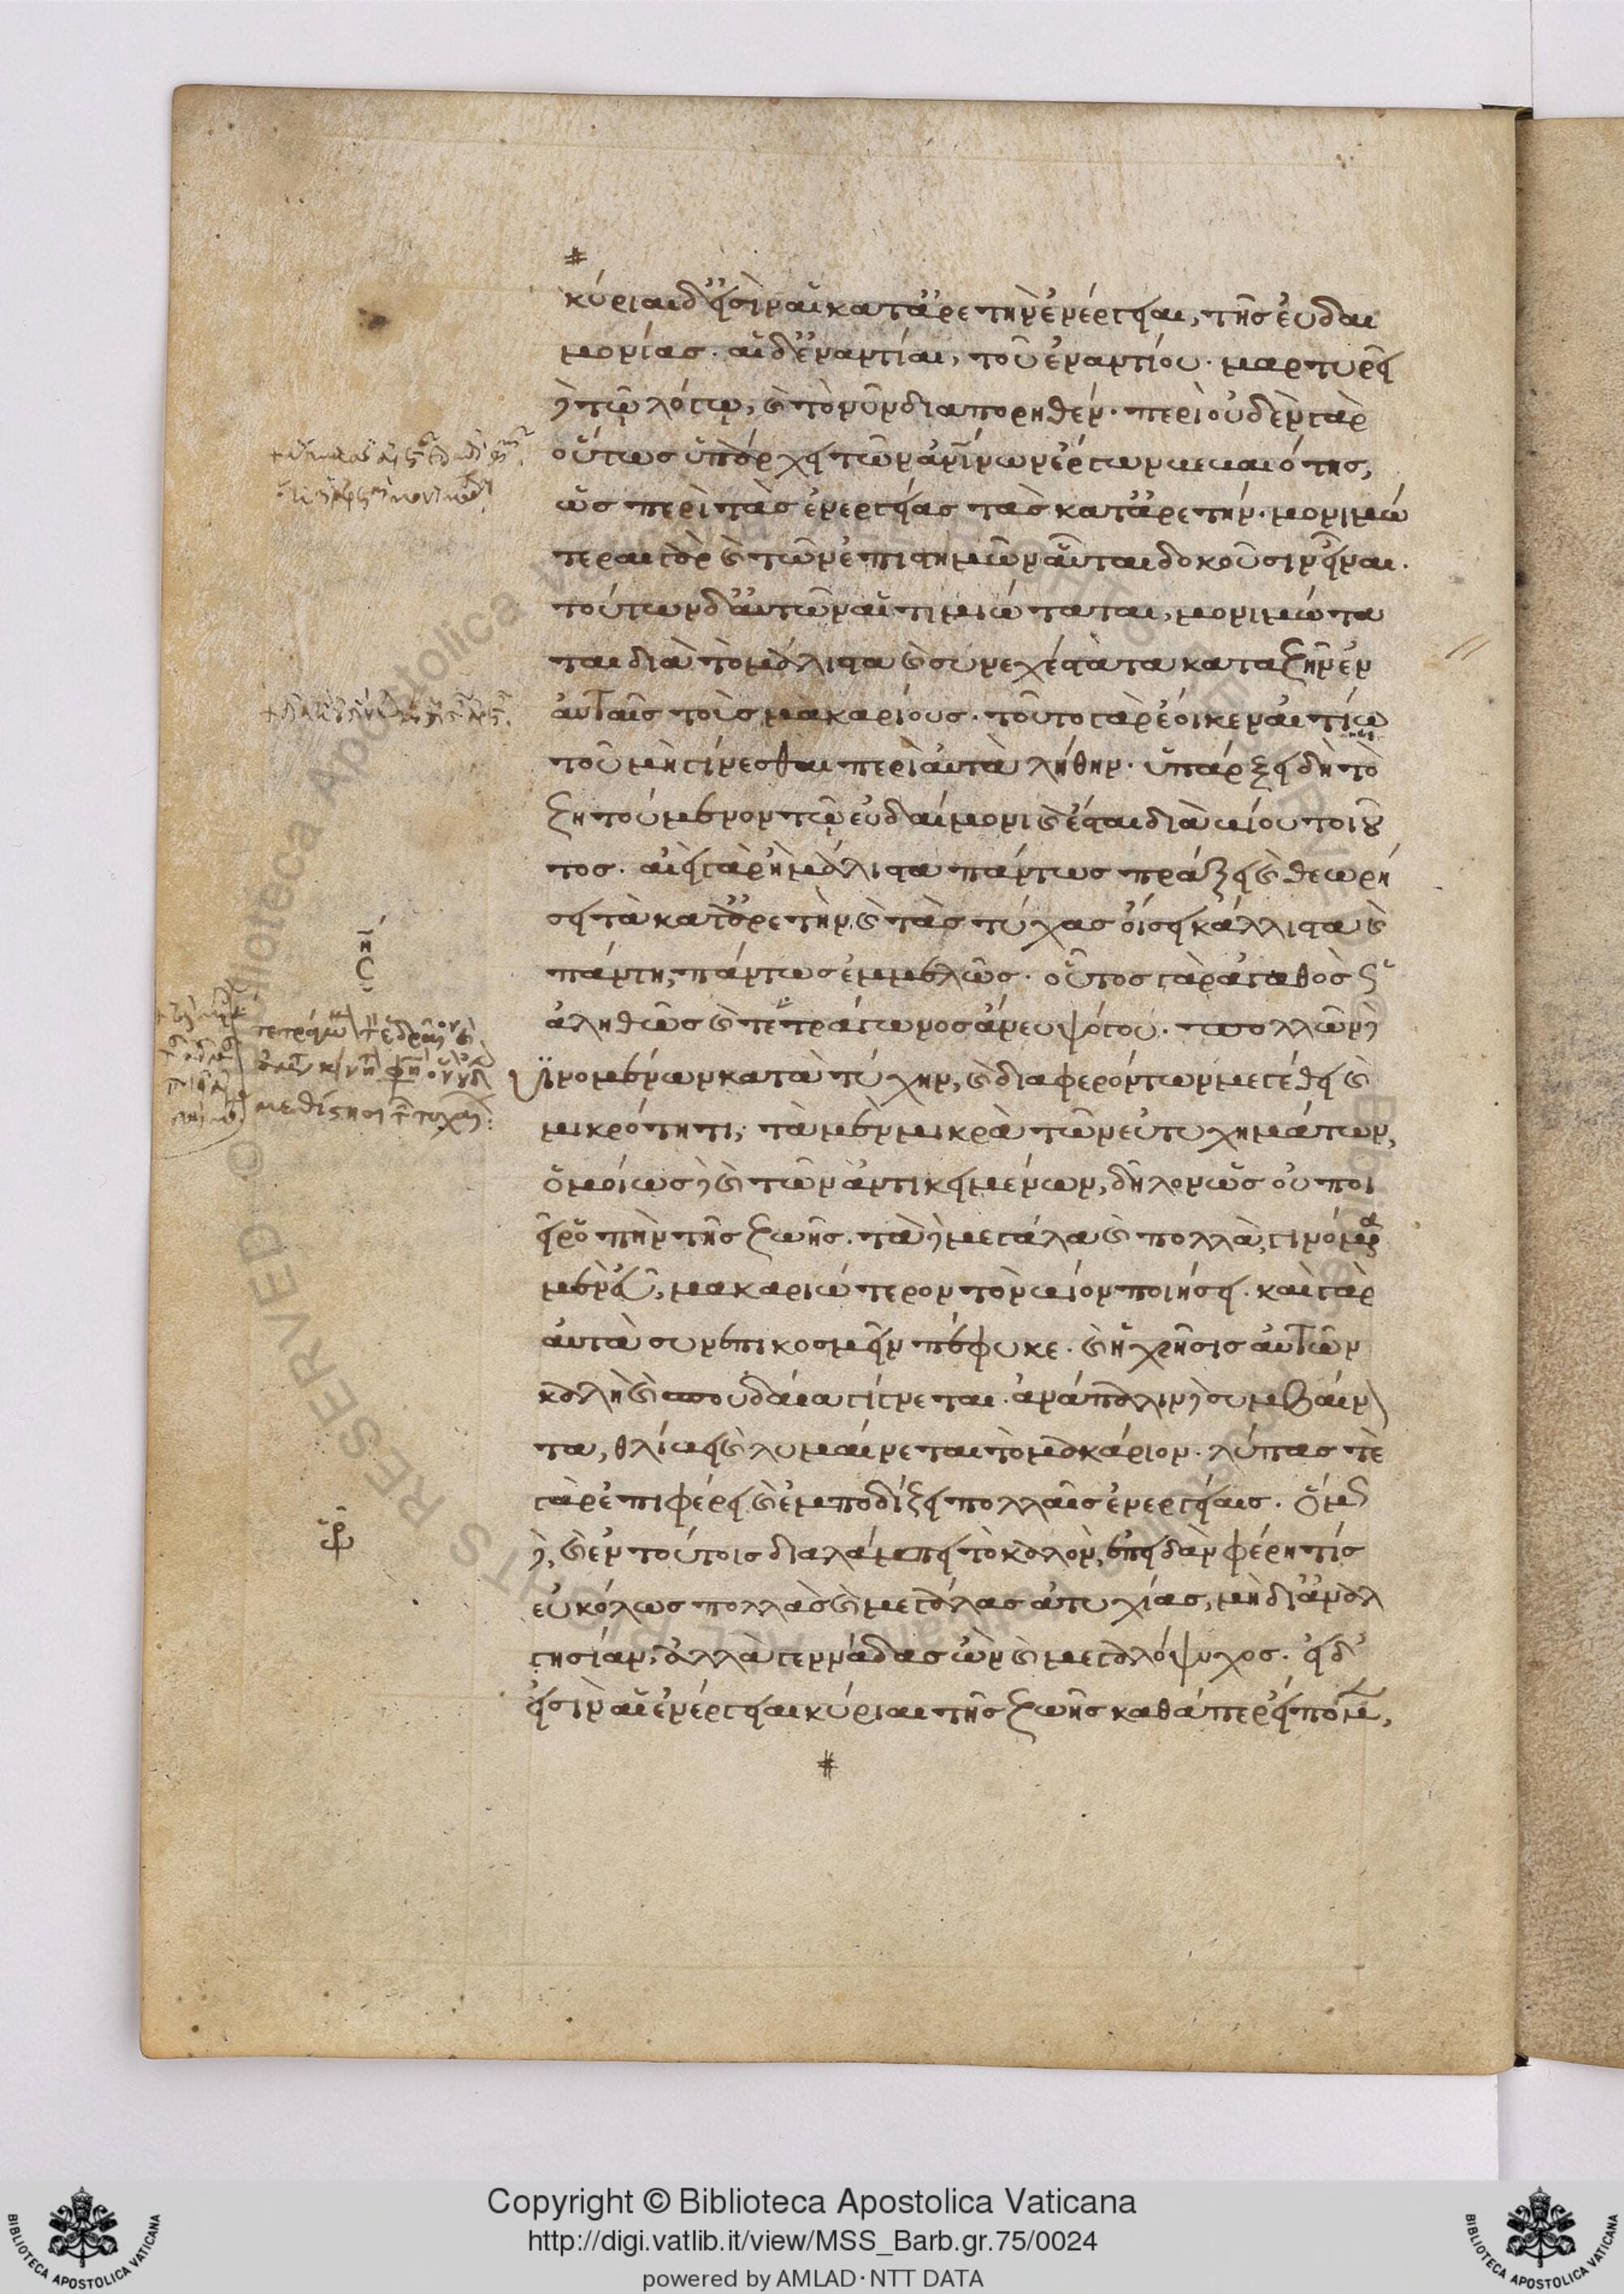 κύριαι δ' εἰσὶν αἱ κατ' ἀρετὴν ἐνέργειαι, τῆς εὐδαι
μονίας. αἱ δ' ἐναντίαι, τοῦ ἐναντίου. μαρτυρεῖ
δὲ τῷ λόγῳ, καὶ τὸ νῦν διαπορηθέν. περὶ οὐδὲν γὰρ
οὕτως ὑπάρχει τῶν ἀνίνων ἔργων βεβαιότης,
ὡς περὶ τὰς ἐνεργείας τὰς κατ' ἀρετήν. μονιμώ
τεραι γὰρ καὶ τῶν ἐπιστημῶν αὗται δοκοῦσιν εἶναι.
τούτων δ' αὐτῶν αἱ τιμιώταται, μονιμώτα
ται διὰ τὸ μάλιστα καὶ συνεχέστατα καταζῆν ἐν
αὐταῖς τοὺς μακαρίους. τοῦτο γὰρ ἔοικεν αἰτίω
τοῦ μὴ γίνεσθαι περὶ αὐτὰ λήθην. ὑπάρξει δὴ τὸ
ζητούμενον τῷ εὐδαίμονι καὶ ἔσται διὰ βίου τοιοῦ
τος. αἰεὶ γὰρ ἢ μάλιστα πάντως πράξει καὶ θεωρή
σει τὰ κατ' ἀρετὴν, καὶ τὰς τύχας οἴσει κάλλιστα καὶ
πάντη, πάντως ἐμμελῶς. οὗτος γὰρ ἀγαθὸς
ἀληθῶς καὶ τετράγωνος ἄνευ ψόγου. πολλῶν δὲ
γινομένων κατὰ τύχην, καὶ διαφερόντων μεγέθει καὶ
μικρότητι, τὰ μὲν μικρὰ τῶν εὐτυχημάτων,
ὁμοίως δὲ καὶ τῶν ἀντικειμένων, δῆλον ὡς οὐ ποι
εῖ ῥοπὴν τῆς ζωῆς. τὰ δὲ μεγάλα καὶ πολλὰ, γινόμενα
μὲν εὖ, μακαριώτερον τὸν βίον ποιήσει. καὶ γὰρ
αὐτὰ συνεπικοσμεῖν πέφυκε. καὶ ἡ χρῆσις αὐτῶν
καλὴ καὶ σπουδαία γίγνεται. ἀνάπαλιν δὲ συμβαίνον
τα, θλίβει καὶ λυμαίνεται τὸ μακάριον. λύπας τὲ
γὰρ ἐπιφέρει καὶ ἐμποδίζει πολλαῖς ἐνεργείαις. ὅμως
δὲ, καὶ ἐν τούτοις διαλάμπει τὸ καλὸν, ἐπειδὰν φέρῃ τίς
εὐκόλως πολλὰς καὶ μεγάλας ἀτυχίας, μὴ δι' ἀναλ
γησίαν, ἀλλὰ γεννάδας ὢν καὶ μεγαλόψυχος. εἰ δ'
εἰσὶν αἱ ἐνέργειαι κύριαι τῆς ζωῆς καθάπερ εἴπομεν,
Copyright © Biblioteca Apostolica Vaticana
http://digi.vatlib.it/view/MSS_Barb.gr.75/0024
powered by AMLAD · NTT DATA
BIBLIOTECA APOSTOLICA VATICANA
BIBLIOTECA APOSTOLICA VATICANA